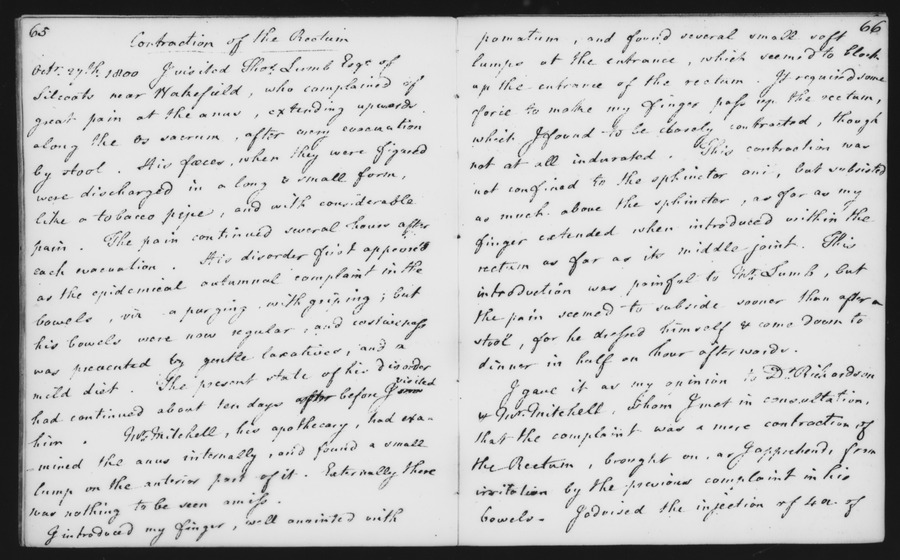 65
Contraction of the Rectum
Octr. 27th. 1800 I visited Thos. Lumb Esqr. of
Silcoats near Wakefield, who complained of
great pain at the anus, extending upwards
along the Os sacrum, after every evacuation
by stool. His fœces, when they were figured
were discharged in a long & small form,
like a tobacco pipe, and with considerable
pain. The pain continued several hours after
each evacuation. His disorder first appeared
as the epidemical autumnal complaint in the
bowels, viz a purging with griping; but
his bowels were now regular, and costiveness
was prevented by gentle laxatives, and a
mild diet. The present state of his disorder
had continued about ten days before I visited
him. Mr. Mitchell, his apothecary, had exa-
mined the anus internally, and found a small
lump on the anterior part of it. Externally there
was nothing to be seen amiss.
I introduced my finger, well anointed with
66
pomatum, and found several small soft
lumps at the entrance, which seemed to block
up the entrance of the rectum. It required some
force to make my finger pass up the rectum,
which I found to be closely contracted, though
not at all indurated. This contraction was
not confined to the sphincter ani, but subsisted
as much above the sphincter, as far as my
finger extended when introduced within the
rectum as far as its middle joint. This
introduction was painful to Mr. Lumb, but
the pain seemed to subside sooner than after a
stool, for he dressed himself & came down to
dinner in half an hour afterwards.
I gave it as my opinion to Dr. Richardson
& Mr. Mitchell, whom I met in consultation,
that the complaint was a mere contraction of
the Rectum, brought on, as I apprehend, from
irritation by the previous complaint in his
bowels. I advised the injection of 4 oz. of